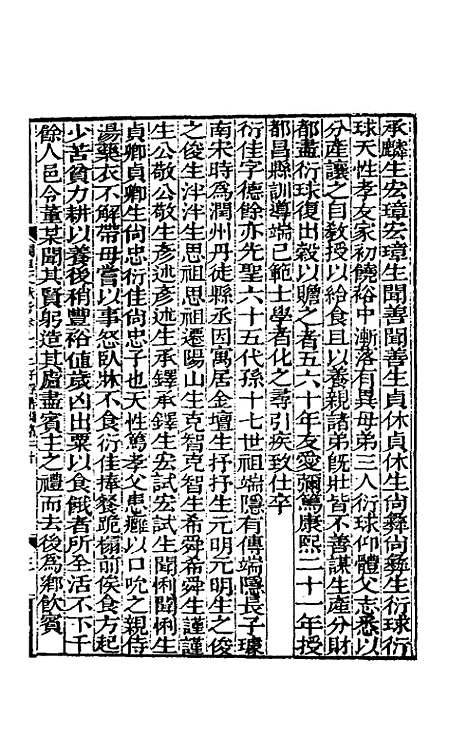 承麟生宏璋宏璋生聞善聞善生貞休貞休生尙彝尙彝生衍球衍
球天性孝友家初饒裕中漸落有異母弟三人衍球仰體父志悉以
分產讓之自敎授以給食且以養親諸弟旣壯皆不善謀生產分財
都盡衍球復出穀以贍之者五六十年友愛彌篤康熙二十一年授
都昌縣訓導端己範士學者化之尋引疾致仕卒
衍佳字德餘亦先聖六十五代孫十七世祖端隱有傳端隱長子璩
南宋時爲潤州丹徒縣丞因寓居金壇生抒抒生元明元明生之俊
之俊生泮泮生思祖思祖遷陽山生克智克智生希舜希舜生謹謹
生公敬公敬生彥述彥述生承鐸承鐸生宏試宏試生聞俐聞俐生
貞卿貞卿生尙忠衍佳尙忠子也天性篤孝父患癰以口吮之親侍
湯藥衣不解帶母嘗以事怒臥牀不食衍佳捧餐跪榻前俟食方起
少苦貧力耕以養後稍豐裕値歲凶出粟以食餓者所全活不下千
餘人邑令董某聞其賢躬造其廬盡賓主之禮而去後爲鄕飮賓